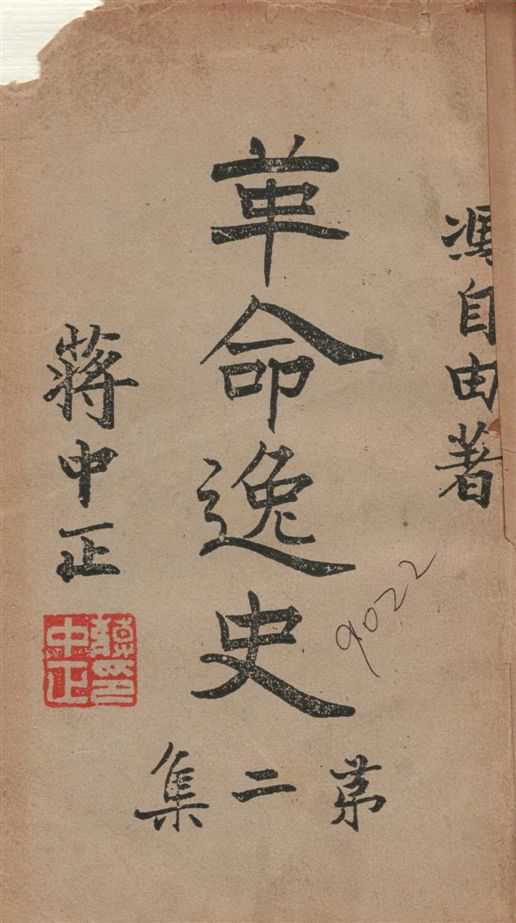 馮自由著
革命逸史
第二集
蔣中正
蔣中正印
9022